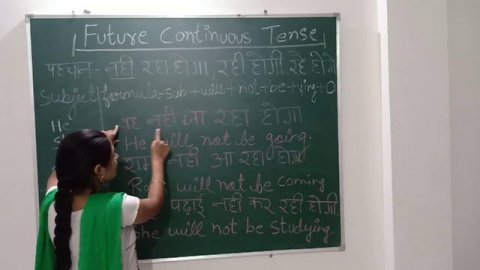 Future Continuous Tense
पहचान - नहीं रहा होगा, रही होगी, रहे होंगे
Subject formula - sub + will + not + be + ing + O
He वह नहीं जा रहा होगा
He will not be going.
राम नहीं आ रहा होगा
Ram will not be coming
पढ़ाई नहीं कर रही होगी
She will not be studying.